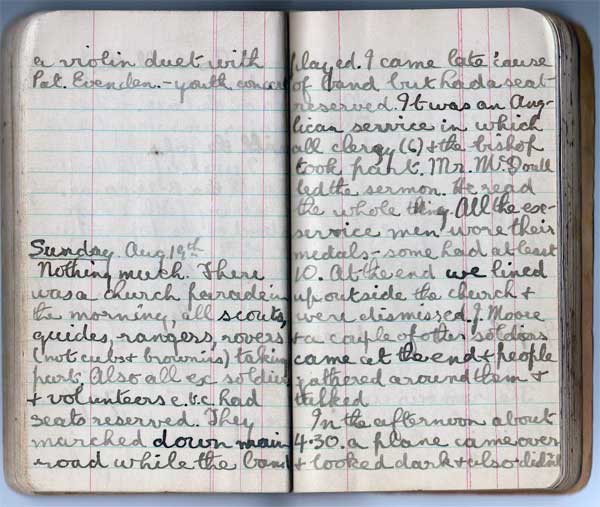 a violin duet with
Pat. Evenden. - youth concert
Sunday Aug 19th
Nothing much. There
was a church parade in
the morning, all scouts,
guides, rangers, rovers
(not cubs & brownins) taking
part. Also all ex soldier
& volunteers e.t.c. had
seats reserved. They
marched down main
road while the band
played. I came late 'cause
of band but had a seat
reserved. It was an Ang-
lican service in which
all clergy (6) & the bishop
took part. Mr.
led the sermon. He read
the whole thing. All the ex-
service men wore their
medals, - some had at least
10. At the end we lined
up outside the church &
were dismissed. J. Moore
& a couple of other soldiers
came at the end & people
gathered around them &
talked
In the afternoon about
4.30. a plane came over
& looked dark & also didn't